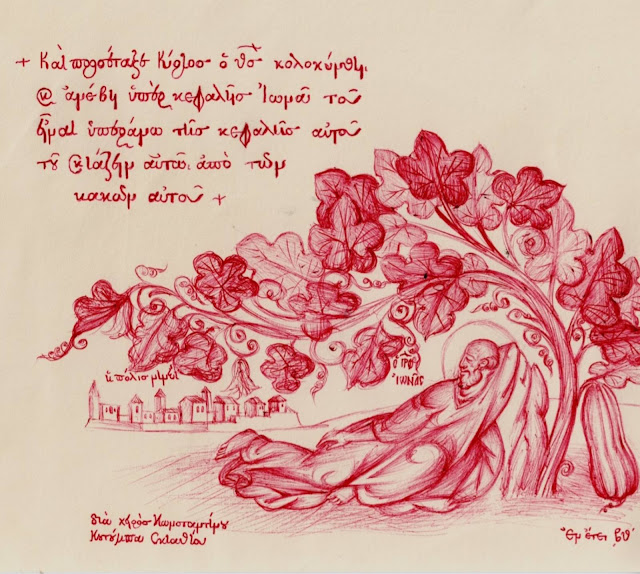 + Καὶ προσέταξε Κύριος ὁ θς κολοκύνθῃ,
ϗ ἀνέβη ὑπὲρ κεφαλῆς Ἰωνᾶ τοῦ
εἶναι ὑπεράνω τῆς κεφαλῆς αὐτοῦ
τοῦ σκιάζειν αὐτῷ, ἀπὸ τῶν
κακῶν αὐτοῦ +
ὁ ΠΡΟΦ
ΙΩΝΑΣ
ἡ πόλις
διὰ χειρὸς Κωνσταντίνου
Σκιαθίου
Ἐν ἔτει